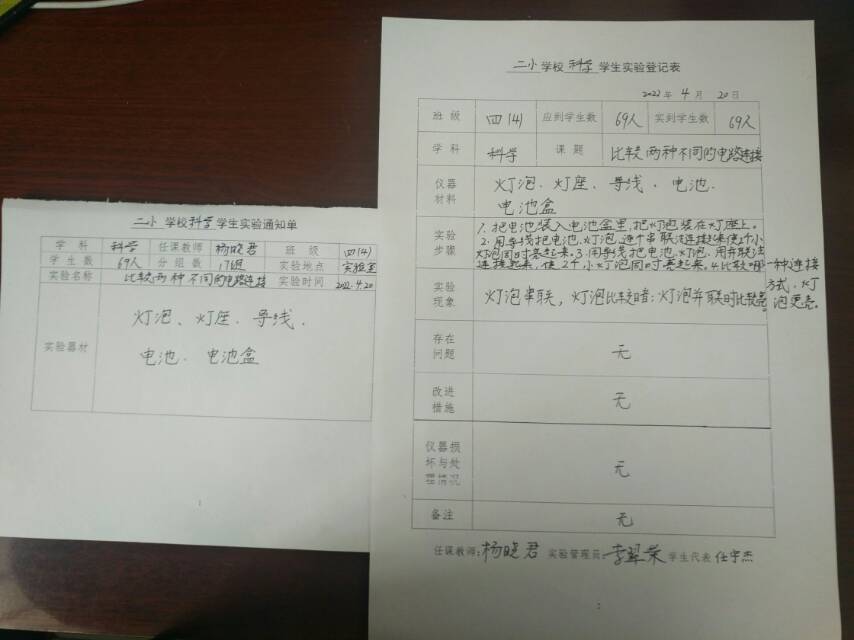 二小 学校 科学 学生实验通知单
学 科 科学 任课教师 杨晓君 班 级 四(4)
学生数 69人 分组数 17组 实验地点 实验室
实验名称 比较两种不同的电路连接 实验时间 2022.4.20
实验器材 灯泡、灯座、导线、
电池、电池盒
二小 学校 科学 学生实验登记表
2022 年 4 月 20 日
班 级 四(4) 应到学生数 69人 实到学生数 69人
学 科 科学 课 题 比较两种不同的电路连接
仪器 灯泡、灯座、导线、电池、
材料 电池盒
实验 1.把电池装入电池盒里,把灯泡装在灯座上。
步骤 2.用导线把电池、灯泡,逐个串联连接起来使2个小
灯泡同时亮起来。3.用导线把电池、灯泡、用并联法
连接起来,使2个小灯泡同时亮起来。4.比较哪一种连接
方式,灯
泡更亮。
实验
现象 灯泡串联,灯泡比较暗;灯泡并联时比较亮。
存在
问题 无
改进
措施 无
仪器损
坏与处
理情况 无
备注 无
任课教师:杨晓君 实验管理员:李翠荣 学生代表 任宇杰